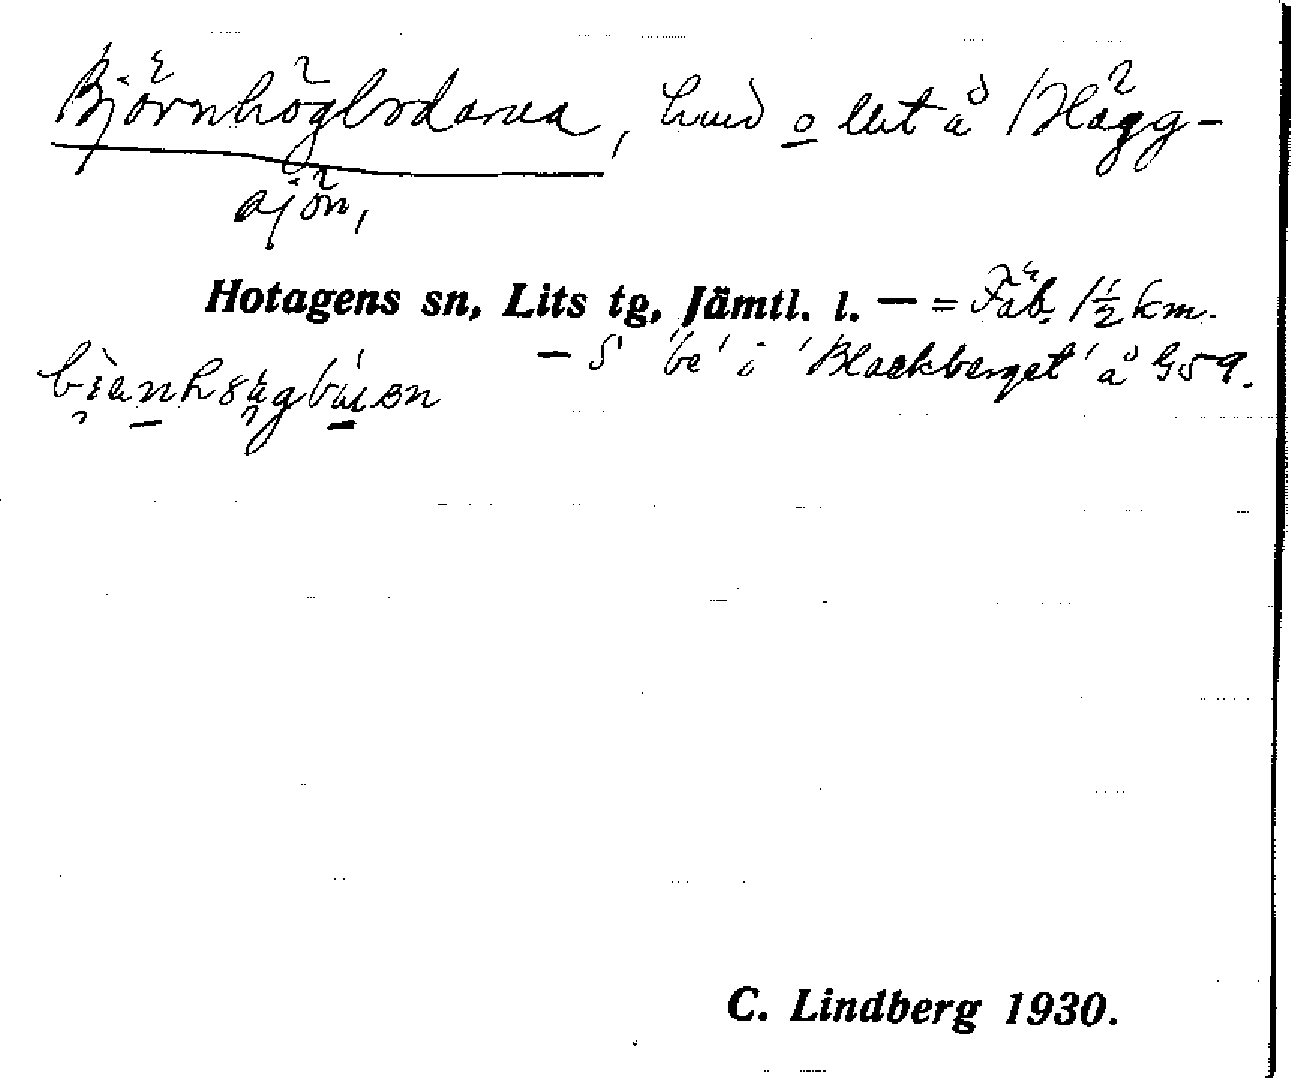 Björnhögbodarna, o å /Hägg-
sjön,
Hotagens sn, Lits tg, Jämtl. l. — = Fäb. 1½ km.
— S 'be' i 'Blackberget' å G59.
C. Lindberg 1930.